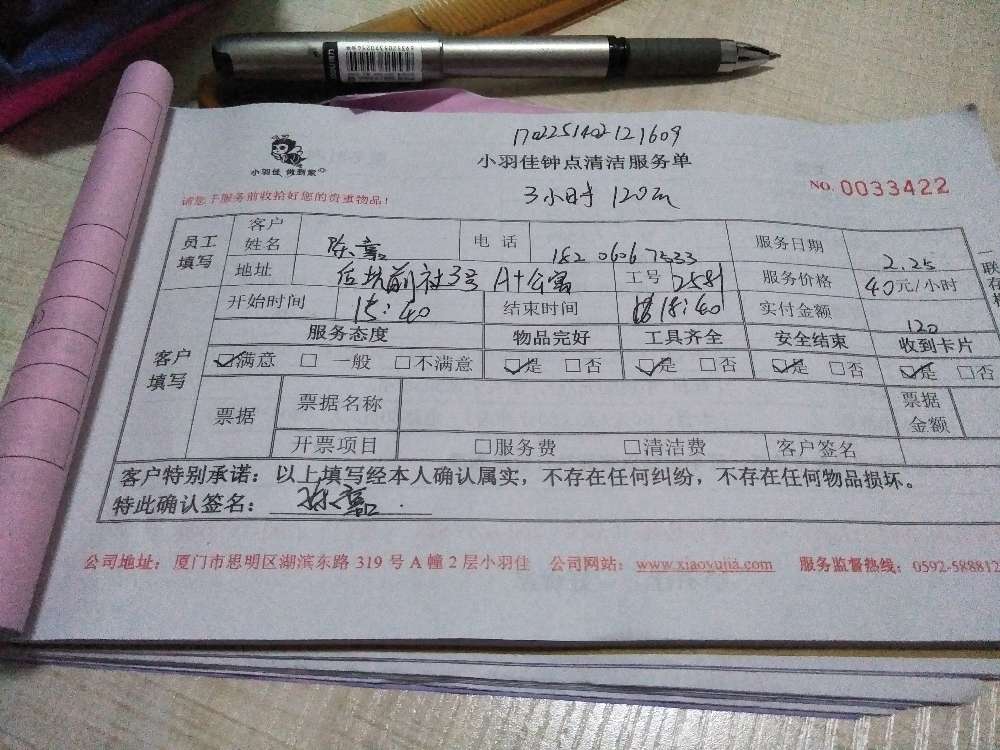 1702251402121609
小羽佳 做到家
小羽佳钟点清洁服务单
请您于服务前收拾好您的贵重物品!
3小时 120元
NO. 0033422
员工填写 客户姓名 陈嘉 电话 服务日期 2.25
地址 后坑前社3号 A+公寓 工号 2581 服务价格 40元/小时
开始时间 15:40 结束时间 18:40 实付金额 120
客户填写 服务态度 物品完好 工具齐全 安全结束 收到卡片
☑满意 □一般 □不满意 ☑是 □否 ☑是 □否 ☑是 □否 ☑是 □否
票据 票据名称 票据金额
开票项目 □服务费 □清洁费 客户签名
客户特别承诺：以上填写经本人确认属实，不存在任何纠纷，不存在任何物品损坏。
特此确认签名：陈嘉
公司地址：厦门市思明区湖滨东路 319 号 A 幢 2 层小羽佳 公司网站：www.xiaoyujia.com 服务监督热线：0592-588812